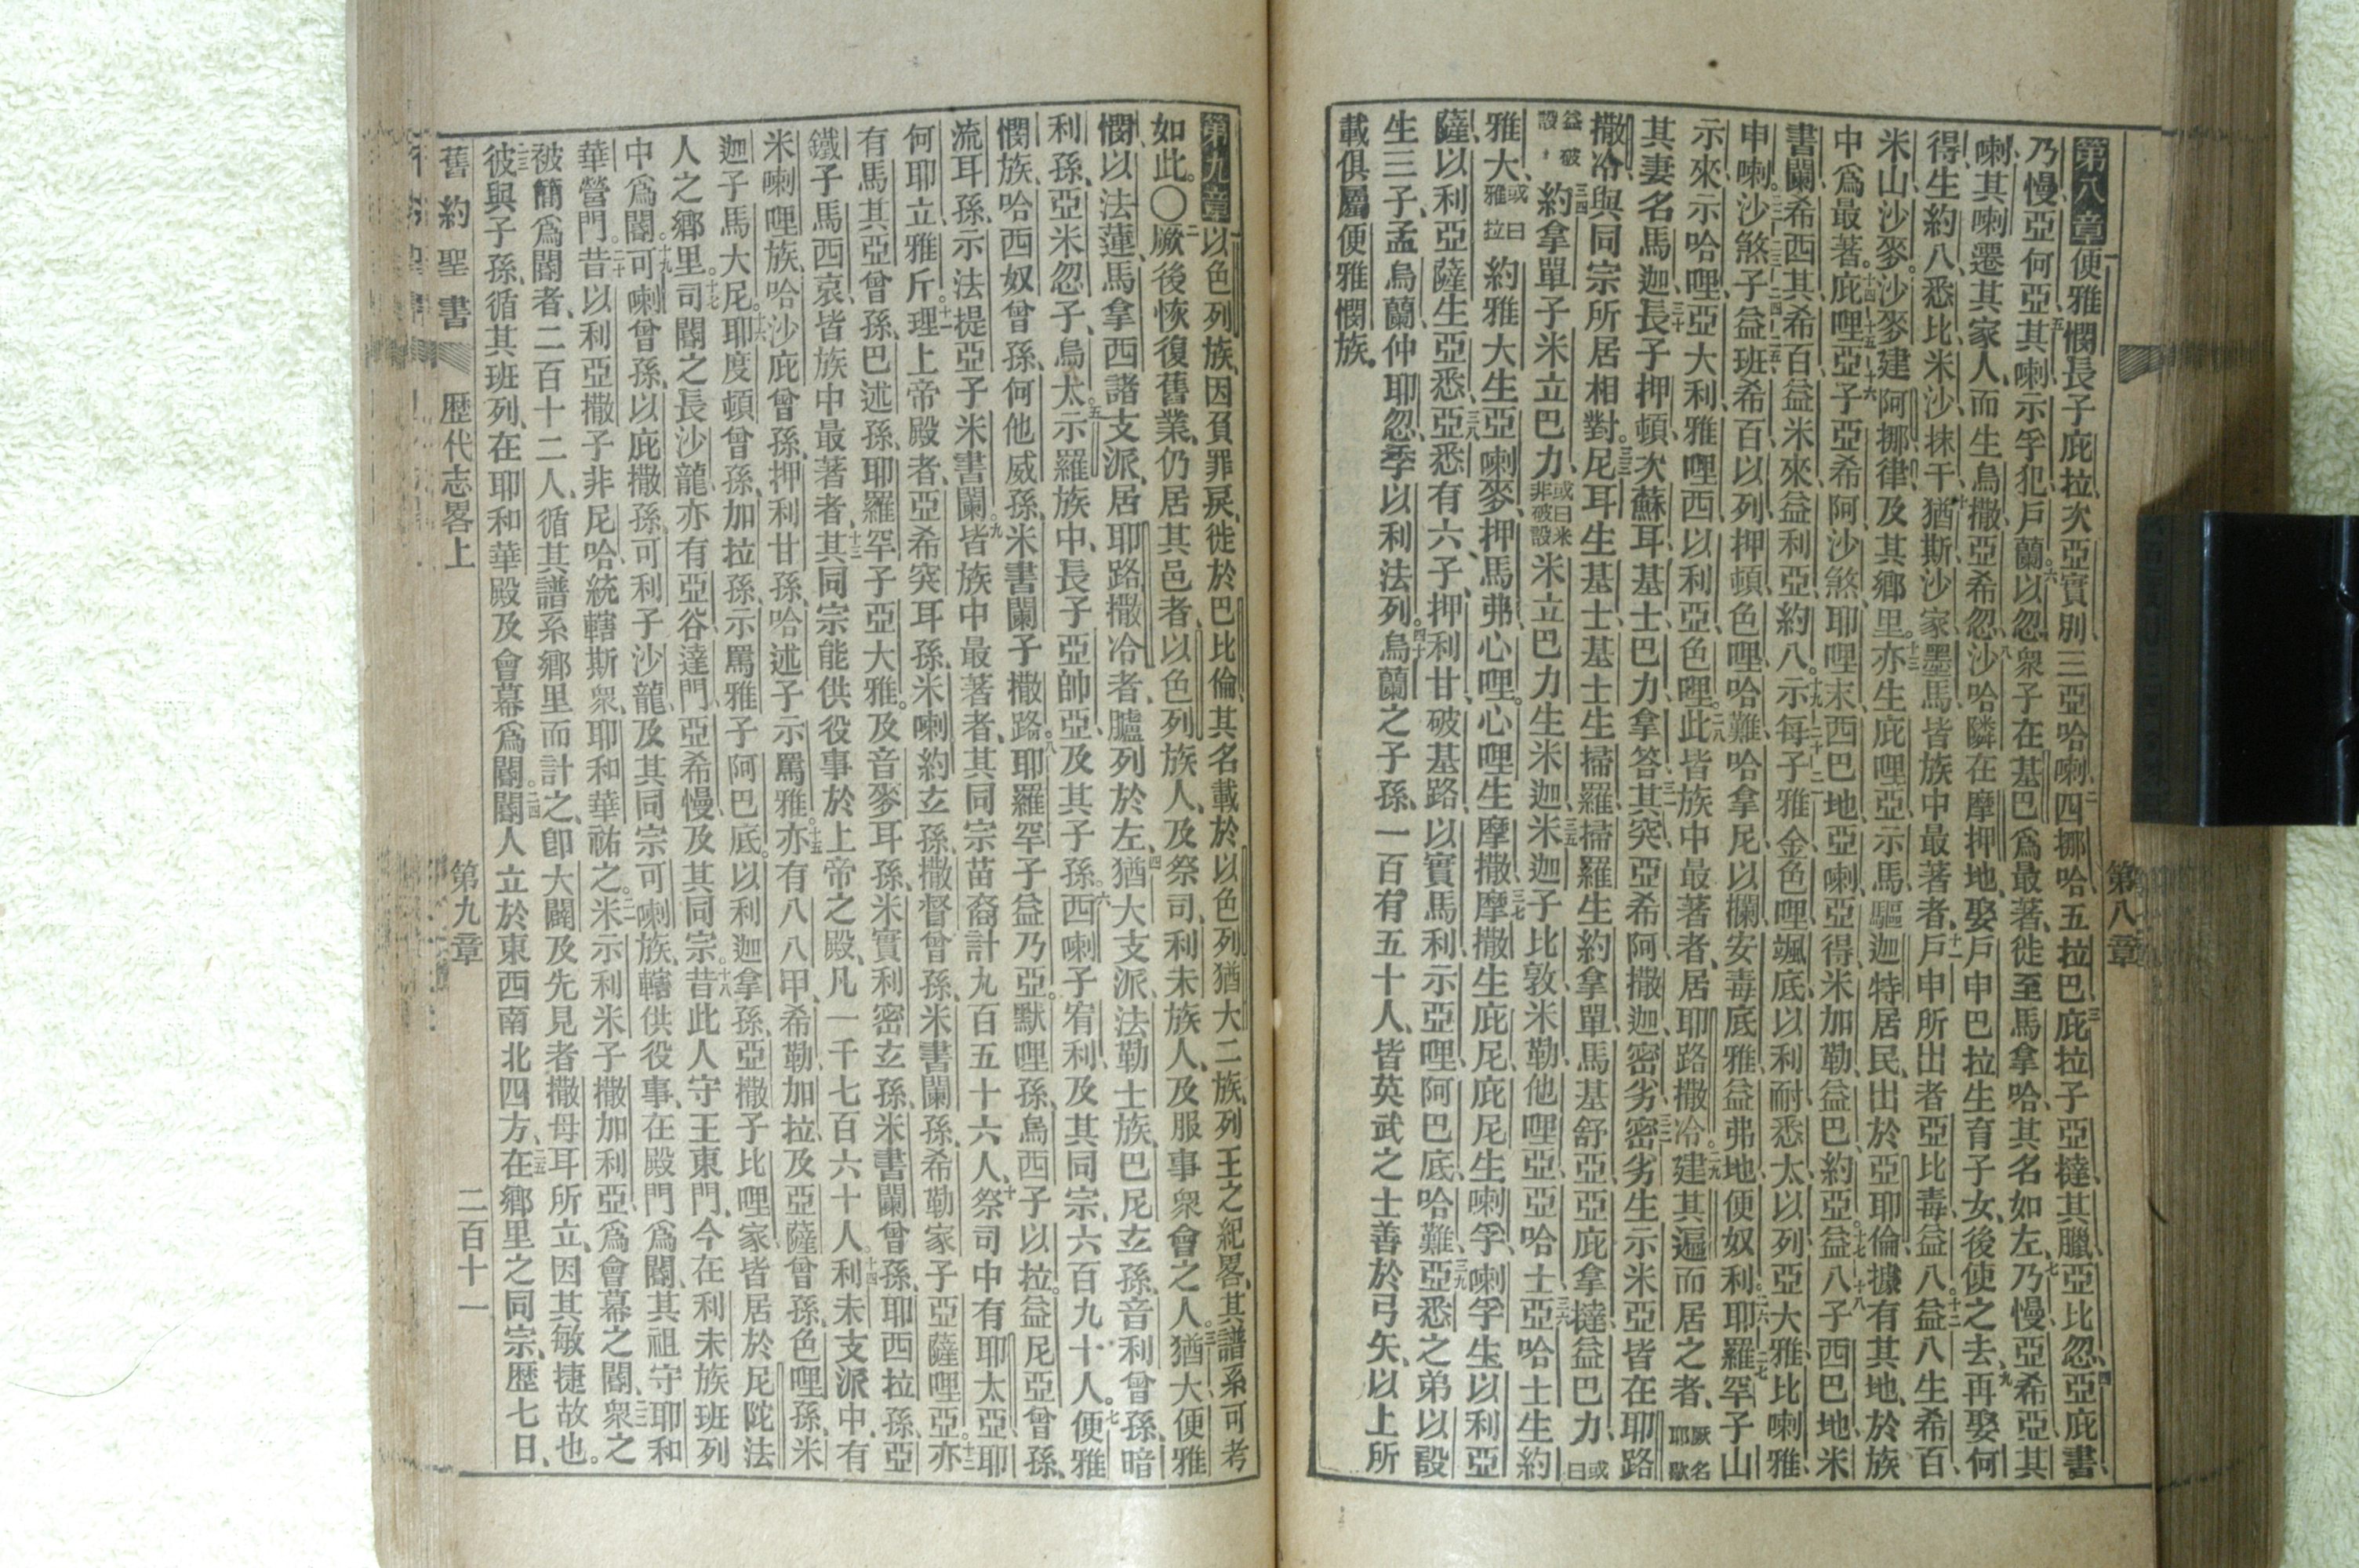 第八章
第八章便雅憫長子庇拉次亞實別三亞哈喇四挪哈五拉巴庇拉子亞撻其臘亞比忽亞庇書
乃慢亞何亞其喇示孚犯戶蘭以忽衆子在基巴爲最著徙至馬拿哈其名如左乃慢亞希亞其
喇其喇遷其家人而生烏撒亞希忽沙哈隣在摩押地娶戶申巴拉生育子女後使之去再娶何
得生約八悉比米沙抹干猶斯沙家墨馬皆族中最著者戶申所出者亞比毒益八益八生希百
米山沙麥沙麥建阿挪律及其鄉里亦生庇哩亞示馬驅迦特居民出於亞耶倫據有其地於族
中爲最著庇哩亞子亞希阿沙煞耶哩末西巴地亞喇亞得米加勒益巴約亞益八子西巴地米
書闌希西其希百益米來益利亞約八示每子雅金色哩颯底以利耐悉太以列亞大雅比喇雅
申喇沙煞子益班希百以列押頓色哩哈難哈拿尼以攔安毒底雅益弗地便奴利耶羅罕子山
示來示哈哩亞大利雅哩西以利亞色哩此皆族中最著者居耶路撒冷建其遍而居之者厥名耶歇
其妻名馬迦長子押頓次蘇耳基士巴力拿答其突亞希阿撒迦密劣密劣生示米亞皆在耶路
撒冷與同宗所居相對尼耳生基士基士生掃羅掃羅生約拿單馬基舒亞亞庇拿撻益巴力或曰
益破設約拿單子米立巴力或曰米非破設米立巴力生米迦米迦子比敦米勒他哩亞亞哈士亞哈士生約
雅大或曰雅拉約雅大生亞喇麥押馬弗心哩心哩生摩撒摩撒生庇尼庇尼生喇孚喇孚生以利亞
薩以利亞薩生亞悉亞悉有六子押利甘破基路以實馬利示亞哩阿巴底哈難亞悉之弟以設
生三子孟烏蘭仲耶忽季以利法列烏蘭之子孫一百有五十人皆英武之士善於弓矢以上所
載俱屬便雅憫族
第九章以色列族因負罪戾徙於巴比倫其名載於以色列猶大二族列王之紀畧其譜系可考
如此○厥後恢復舊業仍居其邑者以色列族人及祭司利未族人及服事衆會之人猶大便雅
憫以法蓮馬拿西諸支派居耶路撒冷者臚列於左猶大支派法勒士族巴尼玄孫音利曾孫暗
利孫亞米忽子烏太示羅族中長子亞帥亞及其子孫西喇子宥利及其同宗六百九十人便雅
憫族哈西奴曾孫何他威孫米書闌子撒路耶羅罕子益乃亞默哩孫烏西子以拉益尼亞曾孫
流耳孫示法提亞子米書闌皆族中最著者其同宗苗裔計九百五十六人祭司中有耶太亞耶
何耶立雅斤理上帝殿者亞希突耳孫米喇約玄孫撒督曾孫米書闌孫希勒家子亞薩哩亞亦
有馬其亞曾孫巴述孫耶羅罕子亞大雅及音麥耳孫米實利密玄孫米書闌曾孫耶西拉孫亞
鐵子馬西哀皆族中最著者其同宗能供役事於上帝之殿凡一千七百六十人利未支派中有
米喇哩族哈沙庇曾孫押利甘孫哈述子示罵雅亦有八八甲希勒加拉及亞薩曾孫色哩孫米
迦子馬大尼耶度頓曾孫加拉孫示罵雅子阿巴底以利迦拿孫亞撒子比哩家皆居於尼陀法
人之鄉里司閽之長沙龍亦有亞谷達門亞希慢及其同宗昔此人守王東門今在利未族班列
中爲閽可喇曾孫以庇撒孫可利子沙龍及其同宗可喇族轄供役事在殿門爲閽其祖守耶和
華營門昔以利亞撒子非尼哈統轄斯衆耶和華祐之米示利米子撒加利亞爲會幕之閽衆之
被簡爲閽者二百十二人循其譜系鄉里而計之卽大闢及先見者撒母耳所立因其敏捷故也
彼與子孫循其班列在耶和華殿及會幕爲閽閽人立於東西南北四方在鄉里之同宗歷七日
舊約聖書 歷代志畧上 第九章 二百十一